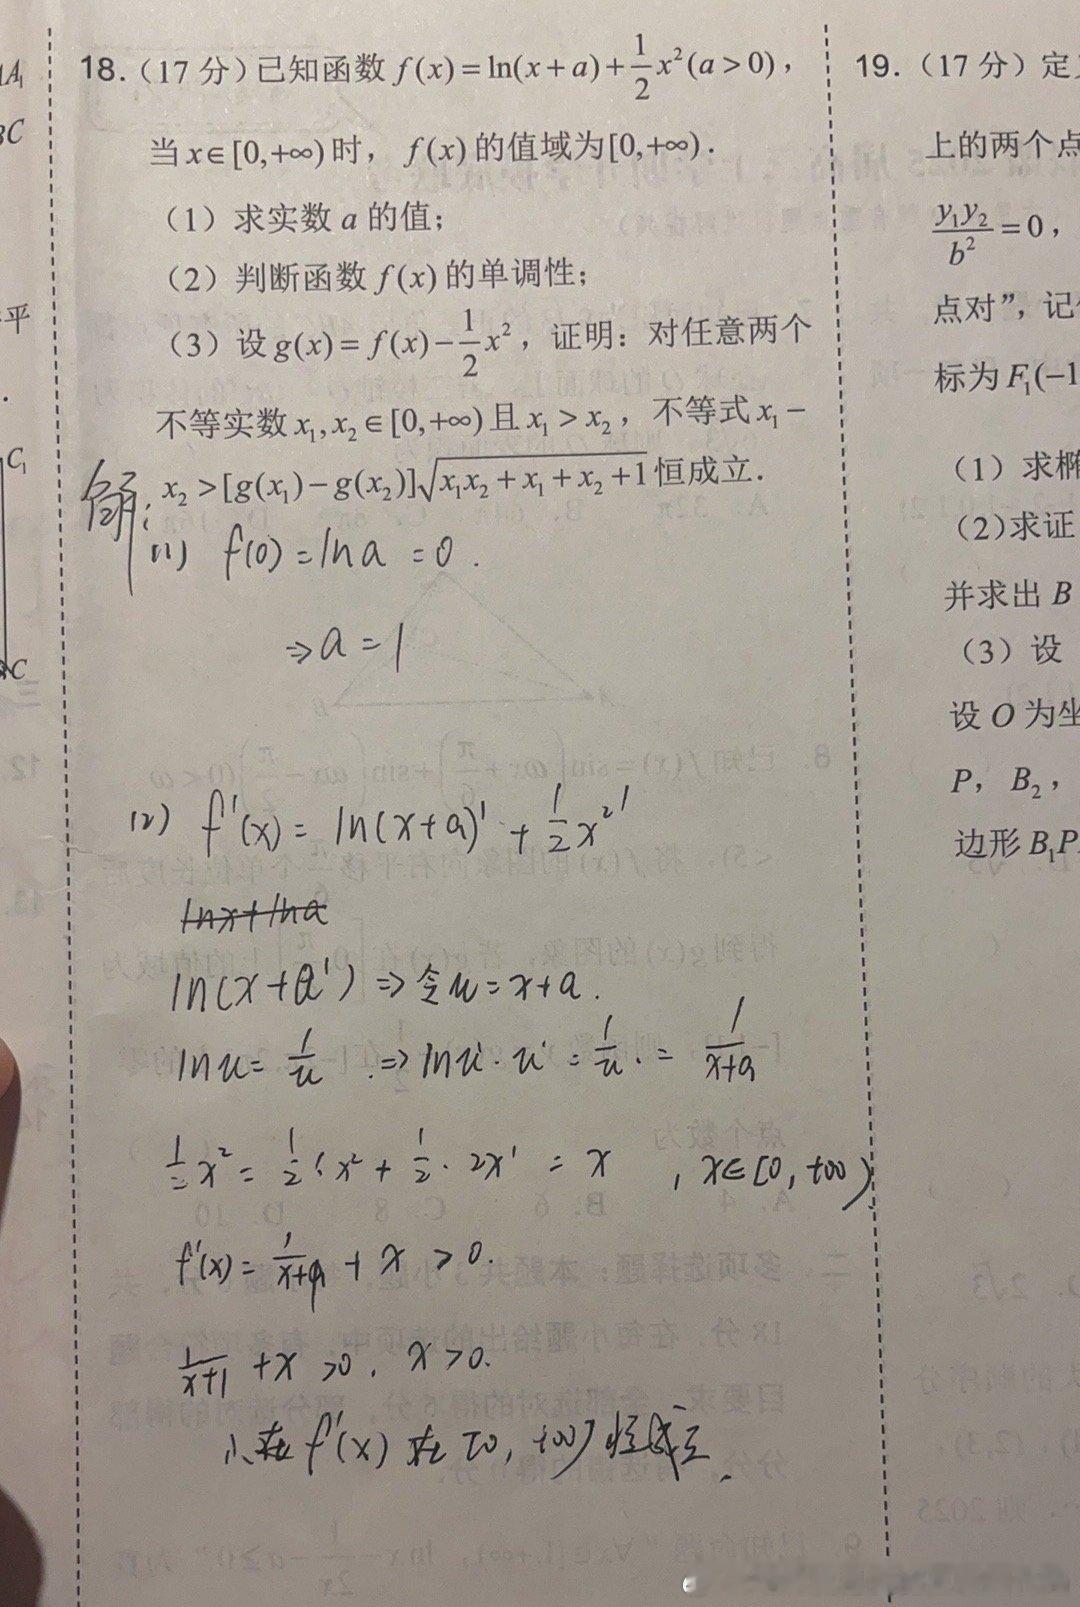 A₁
BC
平
C₁
C
18.（17 分）已知函数 f(x)=ln(x+a)+\frac{1}{2}x²(a>0)，
当 x∈[0,+∞) 时， f(x) 的值域为[0,+∞).
（1）求实数 a 的值；
（2）判断函数 f(x) 的单调性；
（3）设 g(x)=f(x)-\frac{1}{2}x²，证明：对任意两个
不等实数 x₁,x₂∈[0,+∞) 且 x₁>x₂，不等式 x₁-
x₂>[g(x₁)-g(x₂)]\sqrt{x₁x₂+x₁+x₂+1} 恒成立.
解：
(1) f(0)=lna=0.
⇒a=1
(2) f'(x)= ln(x+a)'+\frac{1}{2}x²'
lnx+lna
ln(x+a') ⇒ 令u=x+a.
lnu=\frac{1}{u} .⇒ lnu'·u'=\frac{1}{u}.=\frac{1}{x+a}
\frac{1}{2}x²=\frac{1}{2}'x²+\frac{1}{2}·2x'=x ，x∈[0,+∞)
f'(x)=\frac{1}{x+a}+x>0.
\frac{1}{x+1}+x>0. x>0.
∴在 f'(x) 在 [0,+∞) 恒成立.
19.（17 分）定
上的两个点
\frac{y₁y₂}{b²}=0，
点对”，记
标为 F₁(-1
（1）求椭
（2）求证
并求出 B
（3）设
设 O 为坐
P， B₂，
边形 B₁P